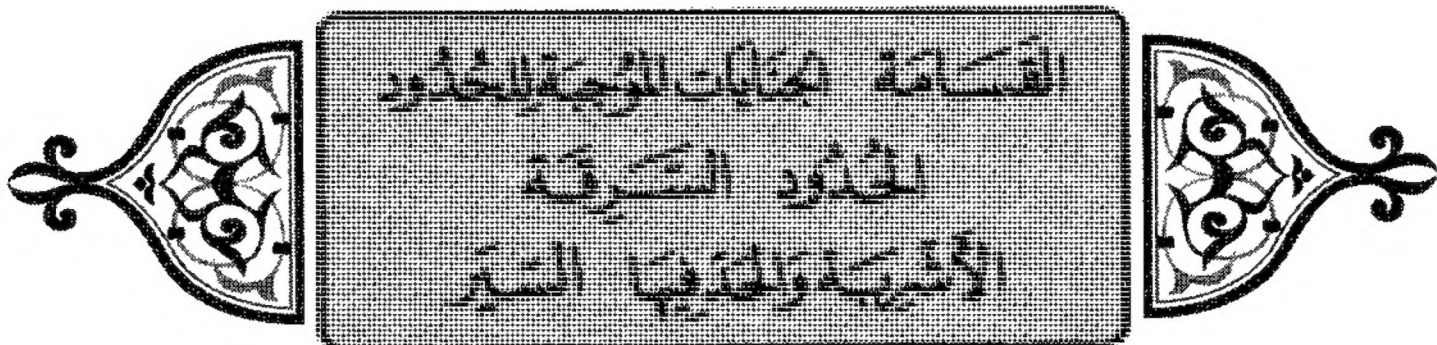 القَسَامَة الجنَايَات الموُجِبَة لِلحُدُود
الحُدُود السَّرِقَة
الأَشْرِبَة وَالحَدّ فِيهَا السِّيَر